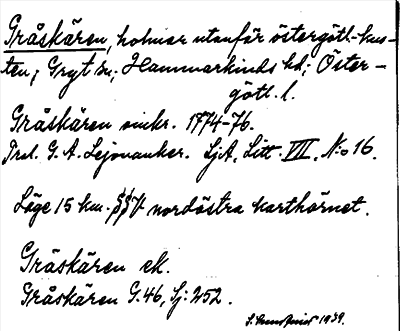 Gråskären, holmar utanför östergötl. kus-
ten; Gryt sn; Hammarkinds hd; Öster-
götl. l.
Gråskären omkr. 1774-76.
Prol. G. A. Lejonanker. SjA, Litt. VII, No 16.
Läge 15 km. nordöstra karthörnet.
Gräskären ek.
Gråskären G. 46, Sj: 252.
1939.